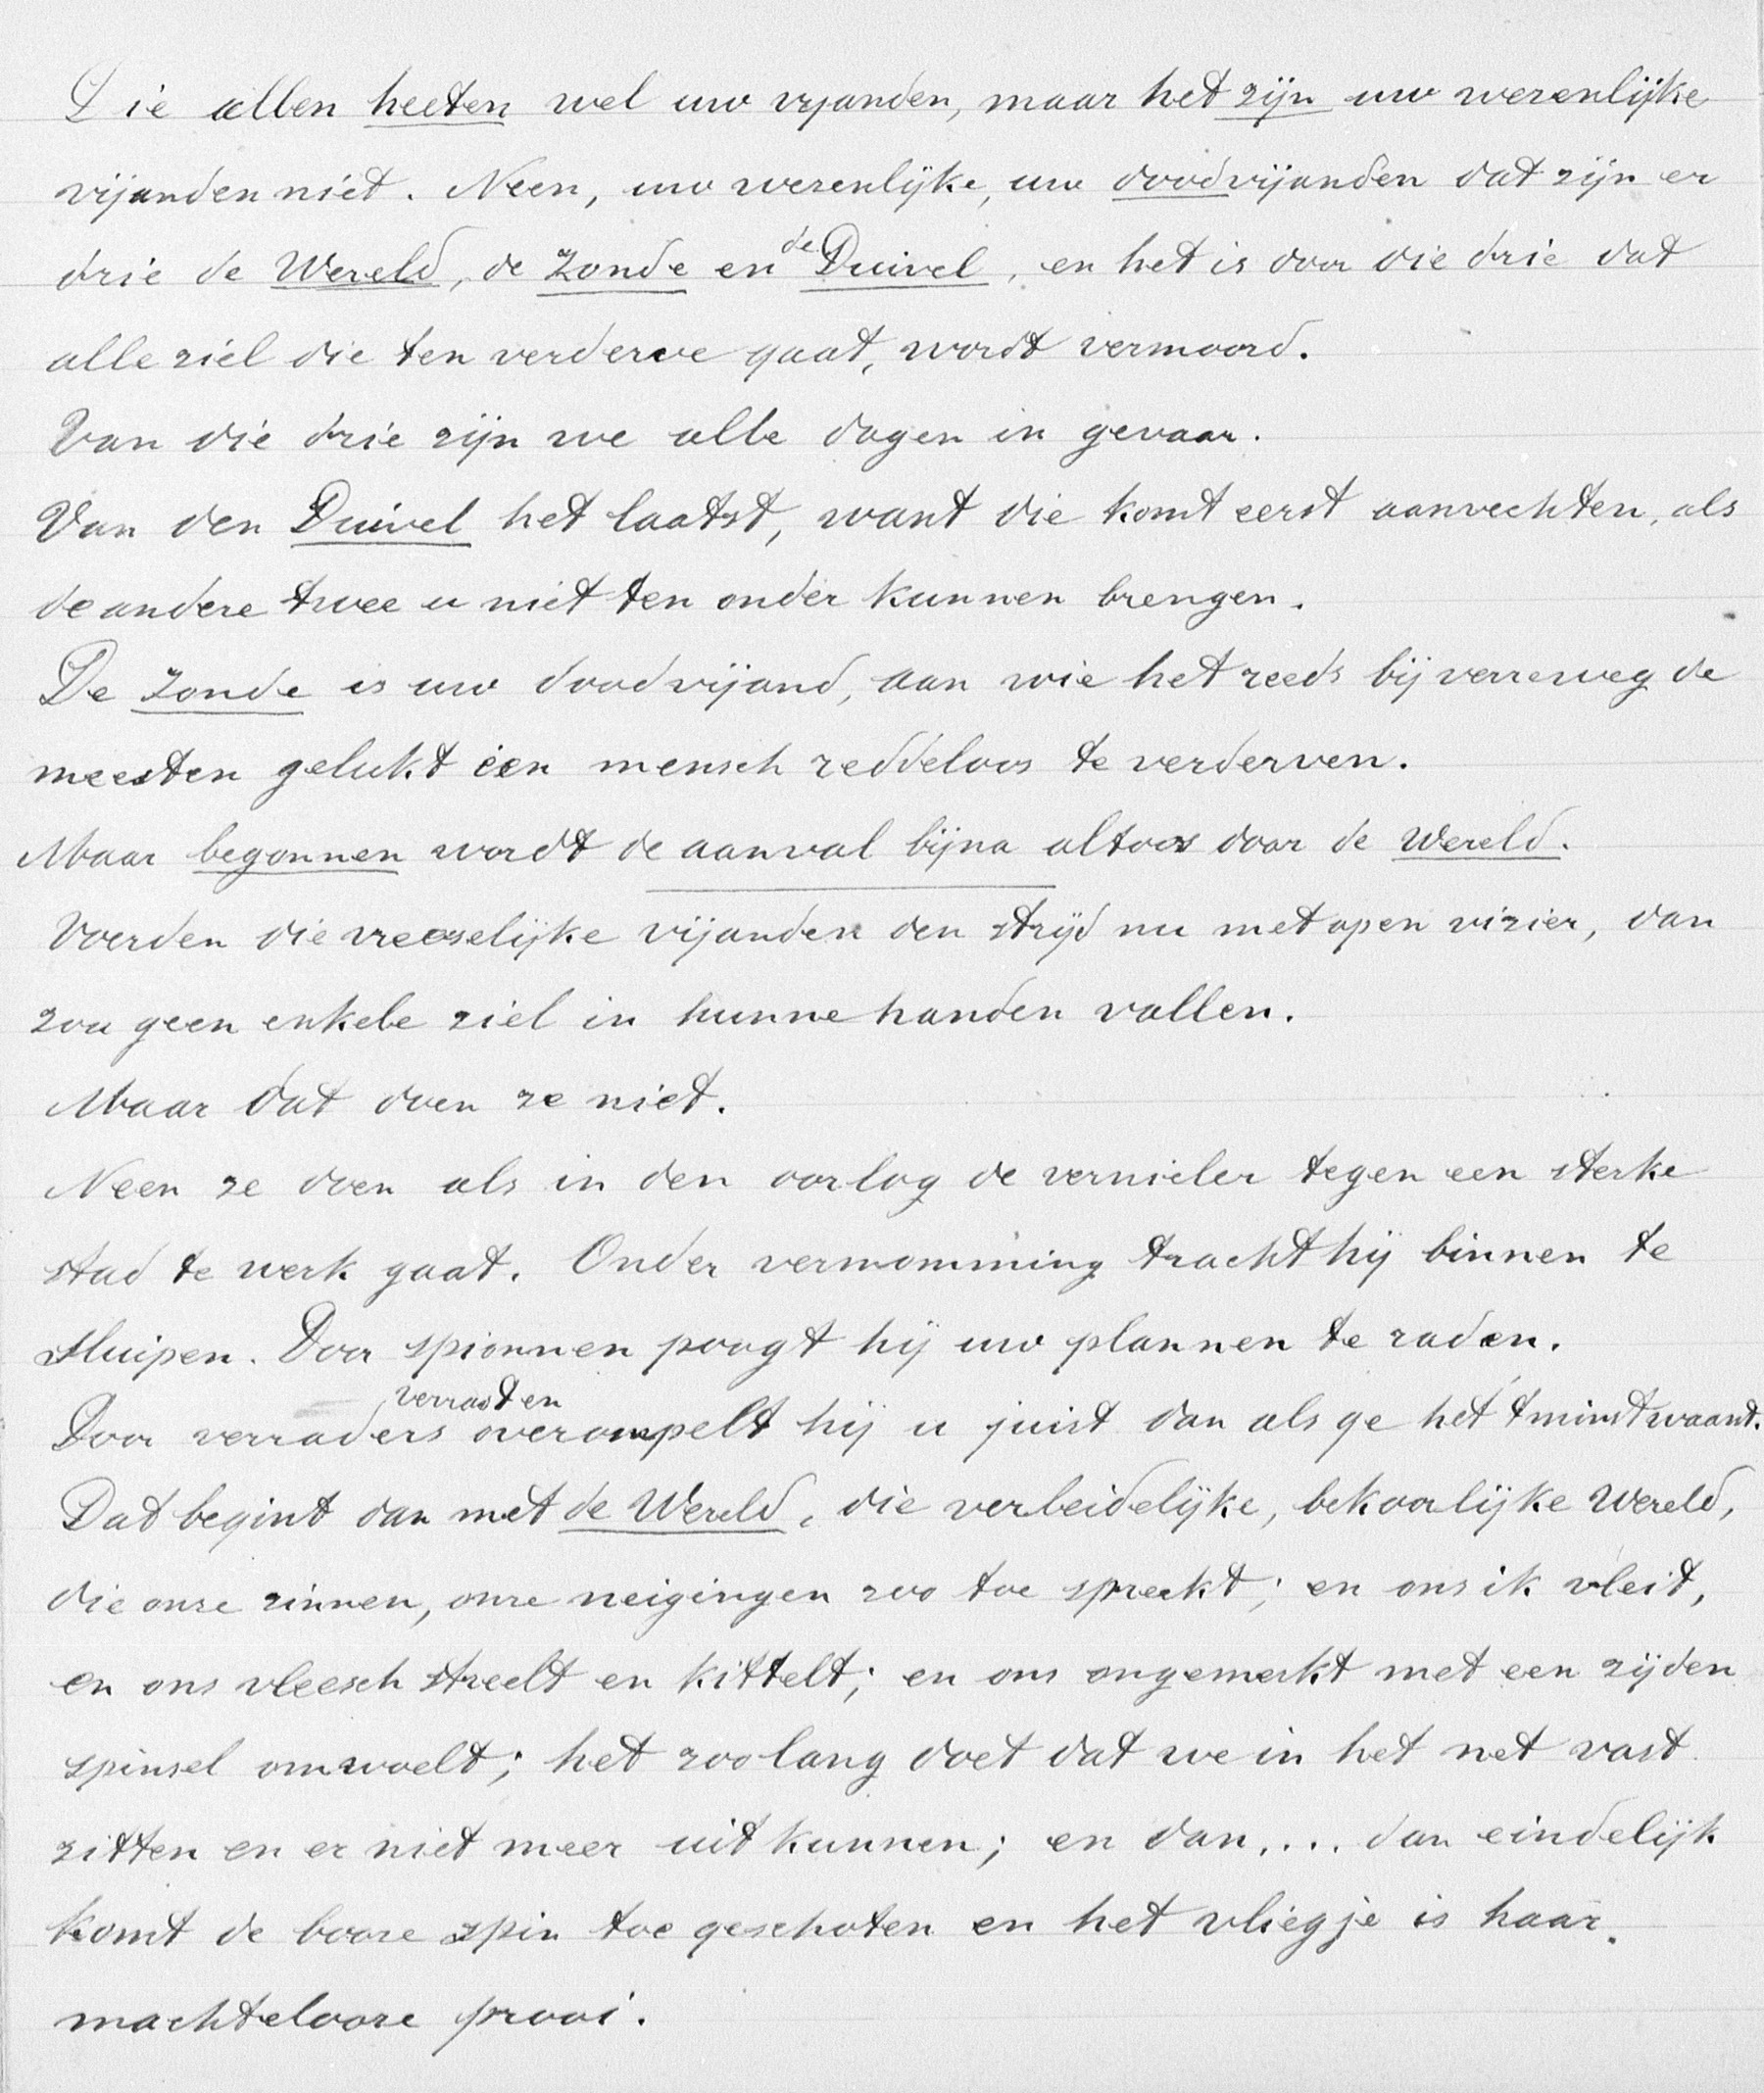 Die allen heeten wel uw vyanden, maar het zijn uw werenlijke
vijanden niet. Neen, uw werenlijke, uw doodvijanden dat zijn er
drie de Wereld, de Zonde en de Duivel, en het is door die drie dat
alle ziel die ten verderve gaat, wordt vermoord.
Van die drie zijn we alle dagen in gevaar.
Van den Duivel het laatst, want die komt eerst aanvechten, als
de andere twee u niet ten onder kunnen brengen.
De Zonde is uw doodvijand, aan wie het reeds bij verreweg de
meesten gelukt een mensch reddeloos te verderven.
Maar begonnen wordt de aanval bijna altoos door de Wereld.
Voerden die vreeselijke vijanden den strijd nu met open vizier, dan
zou geen enkele ziel in hunne handen vallen.
Maar dat doen ze niet.
Neen ze doen als in den oorlog de vernieler tegen een sterke
stad te werk gaat. Onder vermomming tracht hij binnen te
sluipen. Door spionnen poogt hij uw plannen te raden.
Door verraders verrast en overompelt hij u juist dan als ge het 't minst waant.
Dat begint dan met de Wereld, die verleidelijke, bekoorlijke Wereld,
die onze zinnen, onze neigingen zoo toe spreekt; en ons ik vleit,
en ons vleesch streelt en kittelt; en ons ongemerkt met een zijden
spinsel omwoelt; het zoolang doet dat we in het net vast
zitten en er niet meer uit kunnen; en dan.... dan eindelijk
komt de booze spin toe geschoten en het vliegje is haar.
machtelooze prooi.